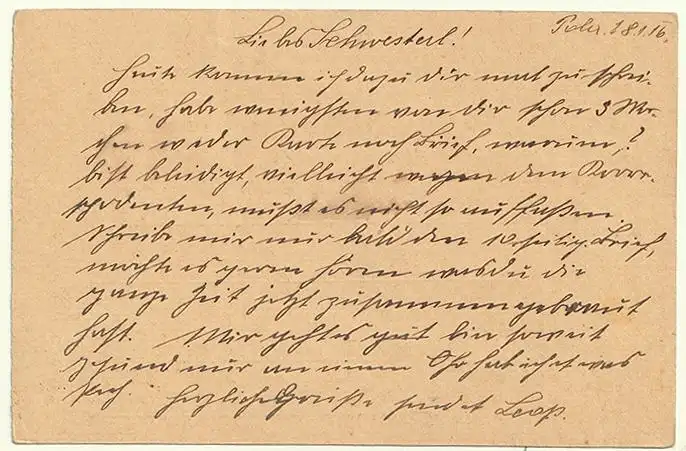 Pola, 18.1.16.
Liebes Schwesterl!
Heute komme ich dazu dir mal zu schrei-
ben, habe wenigsten von dir schon 3 Wo-
chen weder Karte noch Brief, warum,?
bist beleidigt, vielleicht wegen dem Korre-
spodenten, mußt es nicht so auffaßen.
Schreibe mir nur bald den 10 seitig. Brief,
möchte es geren hören was du die
ganze Zeit jetzt zusammengebraut
hast. Mir geht es gut bin soweit
gesund nur an einem Ohr hab ich etwas
Pech. Herzliche Grüße sendet